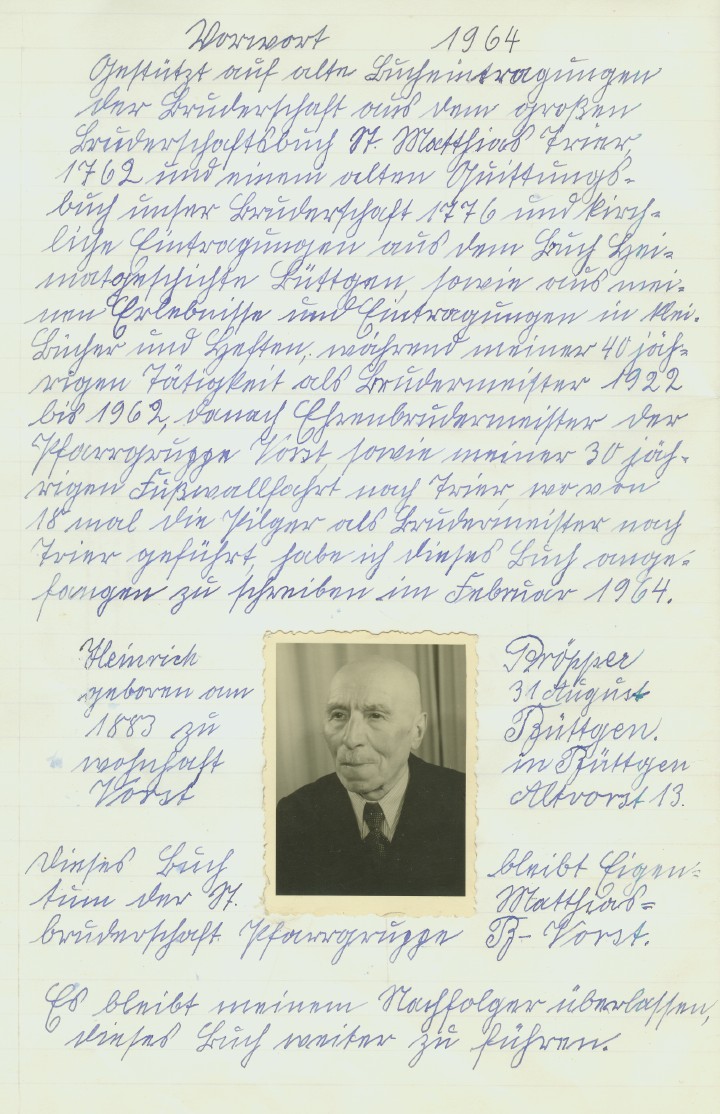 Vorwort 1964
Gestützt auf alte Bucheintragungen
der Bruderschaft aus dem großen
Bruderschaftsbuch St. Matthias Trier,
1762 und einem alten Quittungs-
buch unser Bruderschaft 1776 und kirch-
liche Eintragungen aus dem Buch Hei-
matgeschichte Büttgen, sowie aus mei-
nen Erlebnisse und Eintragungen in klei.
Bücher und Heften, während meiner 40 jäh-
rigen Tätigkeit als Brudermeister 1922
bis 1962, danach Ehrenbrudermeister der
Pfarrgruppe Vorst, sowie meiner 30 jäh-
rigen Fußwallfahrt nach Trier, wo von
18 mal die Pilger als Brudermeister nach
Trier geführt, habe ich dieses Buch ange-
fangen zu schreiben im Februar 1964.
Heinrich Dröpper
geboren am 31 August
1883 zu Büttgen.
wohnhaft in Büttgen
Vorst Altvorst 13.
Dieses Buch bleibt Eigen-
tum der St. Matthias-
bruderschaft Pfarrgruppe B- Vorst.
Es bleibt meinem Nachfolger überlassen,
dieses Buch weiter zu führen.